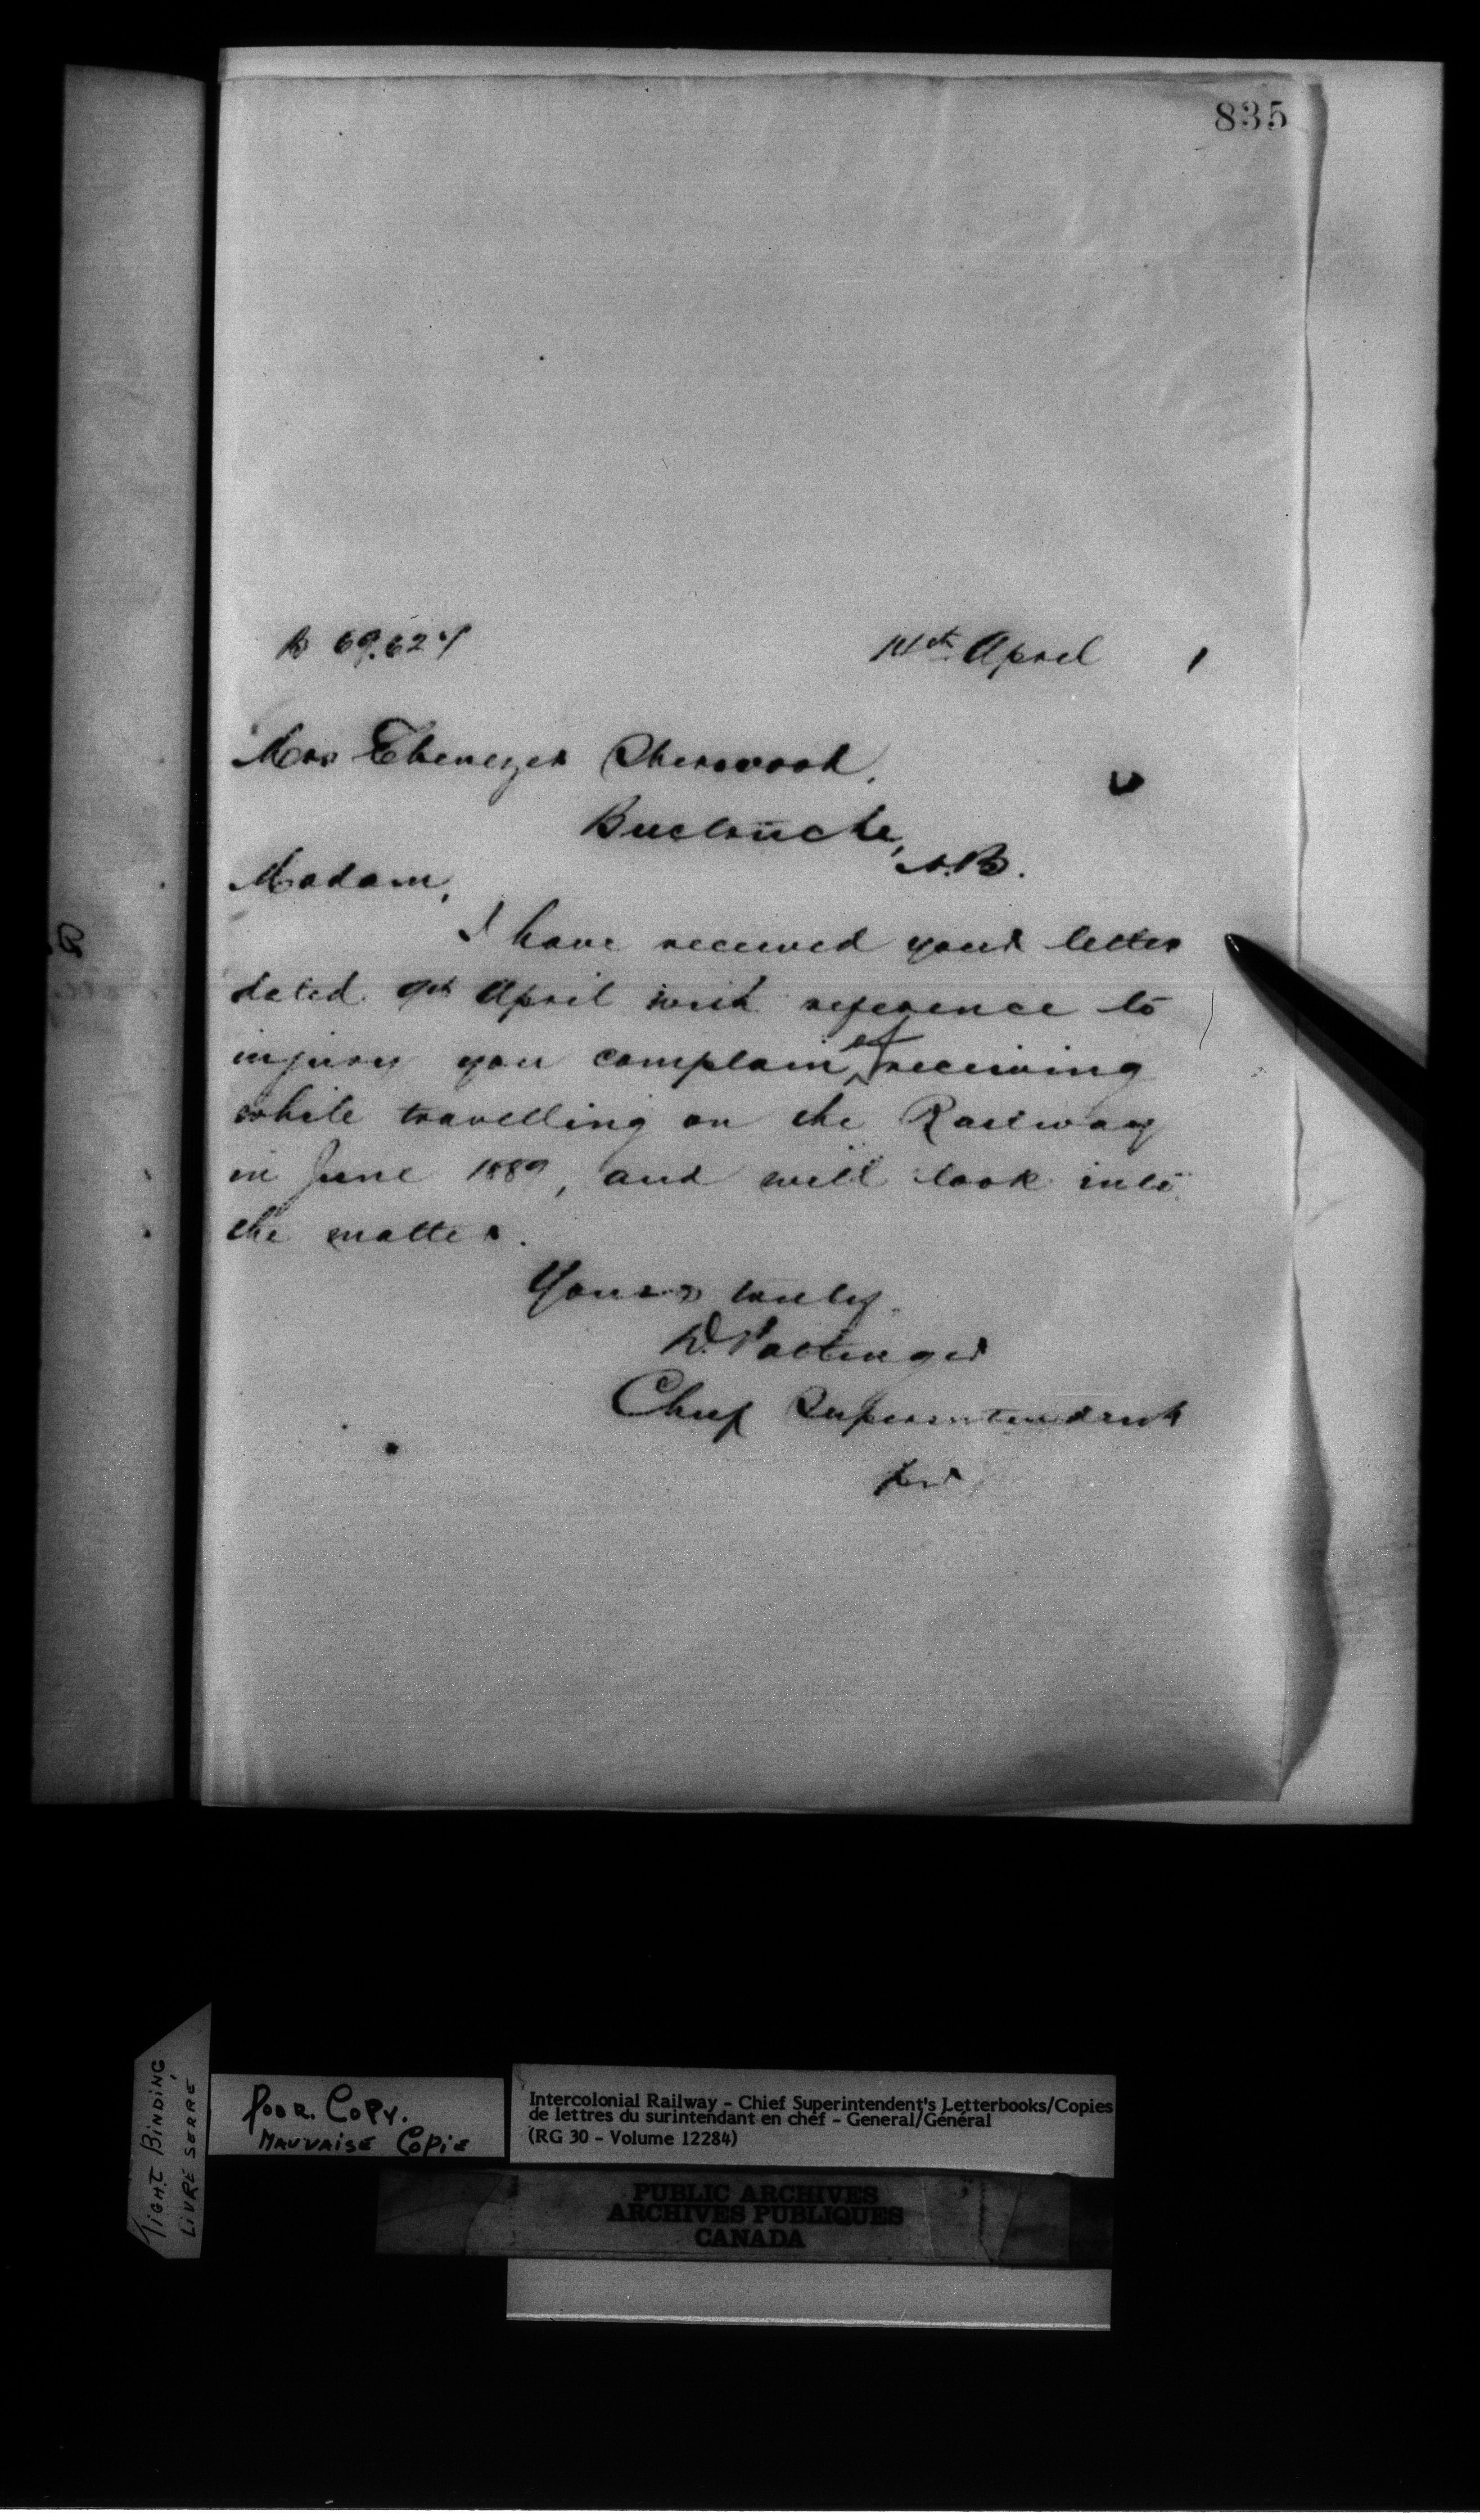 835
14th April 1
Mrs Ebenezer Sherwood,
Buctouche,
N.B.
Madam,
I have received your letter
dated 9th April with reference to
injury you complain of receiving
while travelling on the Railway
in June 1889, and will look into
the matter.
Yours truly
D. Pottinger
Chief Superintendent
POOR. COPY.
MAUVAISE COPIE
TIGHT BINDING
LIVRE SERRE
Intercolonial Railway - Chief Superintendent's Letterbooks/Copies
de lettres du surintendant en chef - General/Général
(RG 30 - Volume 12284)
PUBLIC ARCHIVES
ARCHIVES PUBLIQUES
CANADA